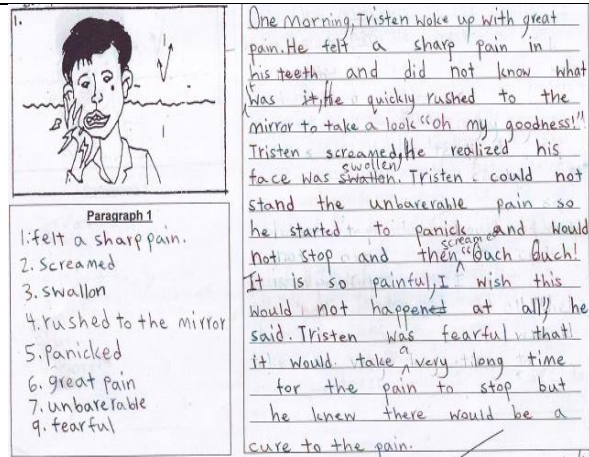 1.
Paragraph 1
1. felt a sharp pain.
2. screamed
3. swallon
4. rushed to the mirror
5. panicked
6. great pain
7. unbarerable
9. fearful
One morning, Tristen woke up with great
pain. He felt a sharp pain in
his teeth and did not know what
was it, He quickly rushed to the
mirror to take a look "Oh my goodness!"
Tristen screamed, He realized his
swollen
face was swallon. Tristen could not
stand the unbarerable pain so
he started to panick and would
screamed
not stop and then "Ouch Ouch!
It is so painful, I wish this
would not happened at all", he
said. Tristen was fearful that
a
it would take very long time
for the pain to stop but
he knew there would be a
cure to the pain.